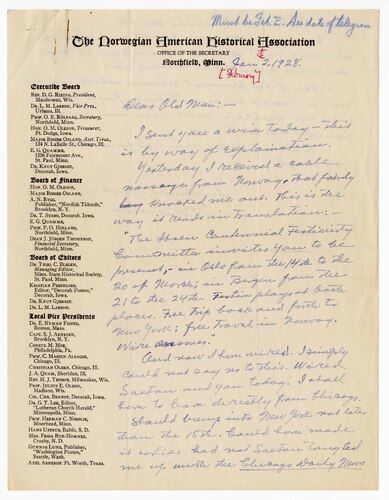 Must be Feb. 2. See date of telegram
The Norwegian American Historical Association
OFFICE OF THE SECRETARY
Northfield, Minn.
Jan 2, 1928.
Executive Board
REV. D. G. RISTAD, President,
Manitowoc, Wis.
DR. L. M. LARSON, Vice Pres.,
Urbana, Ill.
PROF. O. E. RÖLVAAG, Secretary,
Northfield, Minn.
HON. O. M. OLESON, Treasurer,
Ft. Dodge, Iowa.
MAJOR BIRGER OSLAND, Asst. Treas.,
134 N. LaSalle St., Chicago, Ill.
E. G. QUAMME,
St. Paul, Minn.
DR. KNUT GJERSET,
Decorah, Iowa.
Board of Finance
HON. O. M. OLESON,
MAJOR BIRGER OSLAND,
A. N. RYGG,
Publisher, "Nordisk Tidende",
Brooklyn, N. Y.
DR. T. STABO, Decorah, Iowa.
E. G. QUAMME,
PROF. P. O. HOLLAND,
Northfield, Minn.
DEAN J. JÖRGEN THOMPSON,
Financial Secretary,
Northfield, Minn.
Board of Editors
DR. THEO. C. BLEGEN,
Managing Editor,
Minn. State Historical Society,
St. Paul, Minn.
KRISTIAN PRESTGARD,
Editor, "Decorah Posten",
Decorah, Iowa.
DR. KNUT GJERSET,
DR. L. M. LARSON
Local Vice Presidents
Boston, Mass.
CAPT. S. J. ARNESEN,
Brooklyn, N. Y.
CHRISTIAN OLSEN, Chicago, Ill.
J. A. QUAM, Sheridan, Ill.
PROF. JULIUS E. OLSON,
Madison, Wis.
COL. CHR. BRANDT, Decorah, Iowa
DR. G. T. LEE, Editor,
"Lutheran Church Herald"
Minneapolis, Minn.
Moorhead, Minn.
Crosby, N. D.
Publisher,
"Washington Posten",
Seattle, Wash.
AXEL ARNESON, Ft. Worth, Texas.
Dear Old Man:—
I sent you a wire today — this
is by way of explanation.
Yesterday I received a cable
message from Norway, that fairly
knocked me out. This is the
way it reads in translation: —
"The Ibsen Centennial Festivity
Committee invites you to be
present, — in Oslo from the 14th to the
20 of March; in Bergen from the
21 to the 24th. Festive plays at both
places. Free trip back and forth to
New York; free travel in Norway.
Wire answer.
And now I have wired. I simply
could not say no to this. Wired
Saxton and you today. I shall
have to leave directly from Chicago.
Should be in New York not later
than the 15th. Could have made
it earlier had not Saxton tangled
me up with the Chicago Daily News